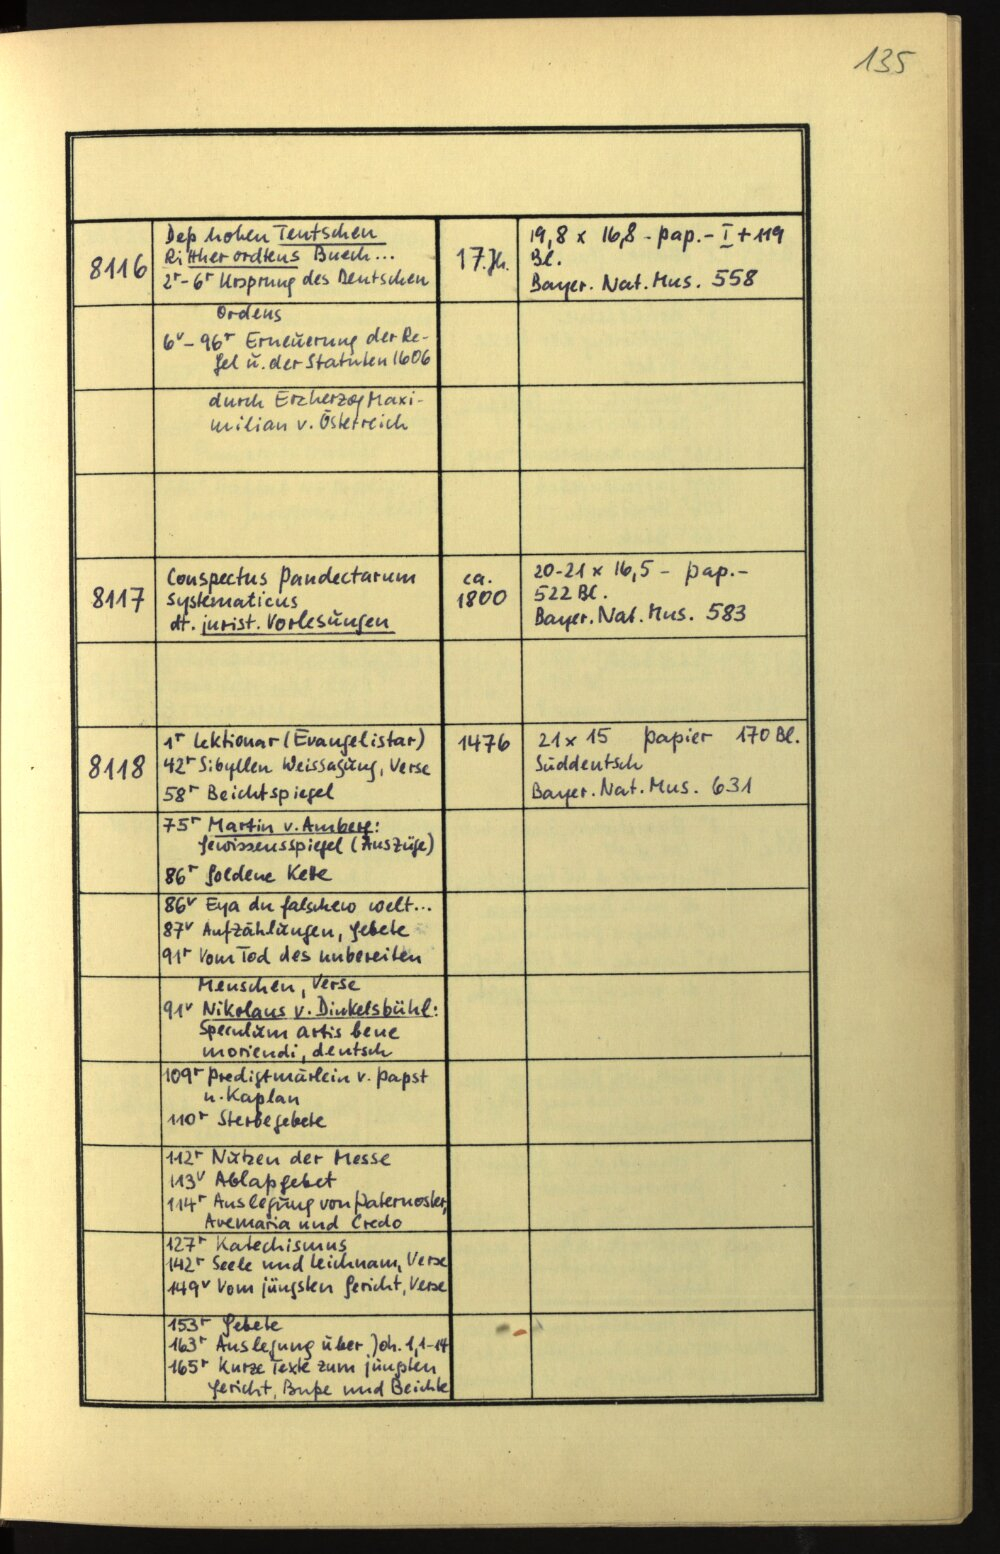 135
Deß hohen Teutschen
Ritther ordtens Buech...
8116
2r-6r Ursprung des Deutschen
17. Jh.
19,8 x 16,8 - pap. - I + 119
Bl.
Bayer. Nat. Mus. 558
Ordens
6v-96r Erneuerung der Re-
gel u. der Statuten 1606
durch Erzherzog Maxi-
milian v. Österreich
8117
Conspectus Pandectarum
systematicus
dt. jurist. Vorlesungen
ca.
1800
20-21 x 16,5 - pap. -
522 Bl.
Bayer. Nat. Mus. 583
8118
1r Lektionar (Evangelistar)
42r Sibyllen Weissagung, Verse
58r Beichtspiegel
1476
21 x 15 papier 170 Bl.
Süddeutsch
Bayer. Nat. Mus. 631
75r Martin v. Amberg:
Gewissensspiegel (Auszüge)
86r Goldene Kette
86v Eya du falschew welt...
87v Aufzählungen, Gebete
91r Vom Tod des unbereiten
Menschen, Verse
91v Nikolaus v. Dinkelsbühl:
Speculum artis bene
moriendi, deutsch
109r Predigtmärlein v. Papst
u. Kaplan
110r Sterbegebete
112r Nutzen der Messe
113v Ablaßgebet
114r Auslegung von Paternoster,
Avemaria und Credo
127r Katechismus
142r Seele und Leichnam, Verse
149v Vom jüngsten Gericht, Verse
153r Gebete
163r Auslegung über Joh. 1,1-14
165r Kurze Texte zum jüngsten
Gericht, Buße und Beichte